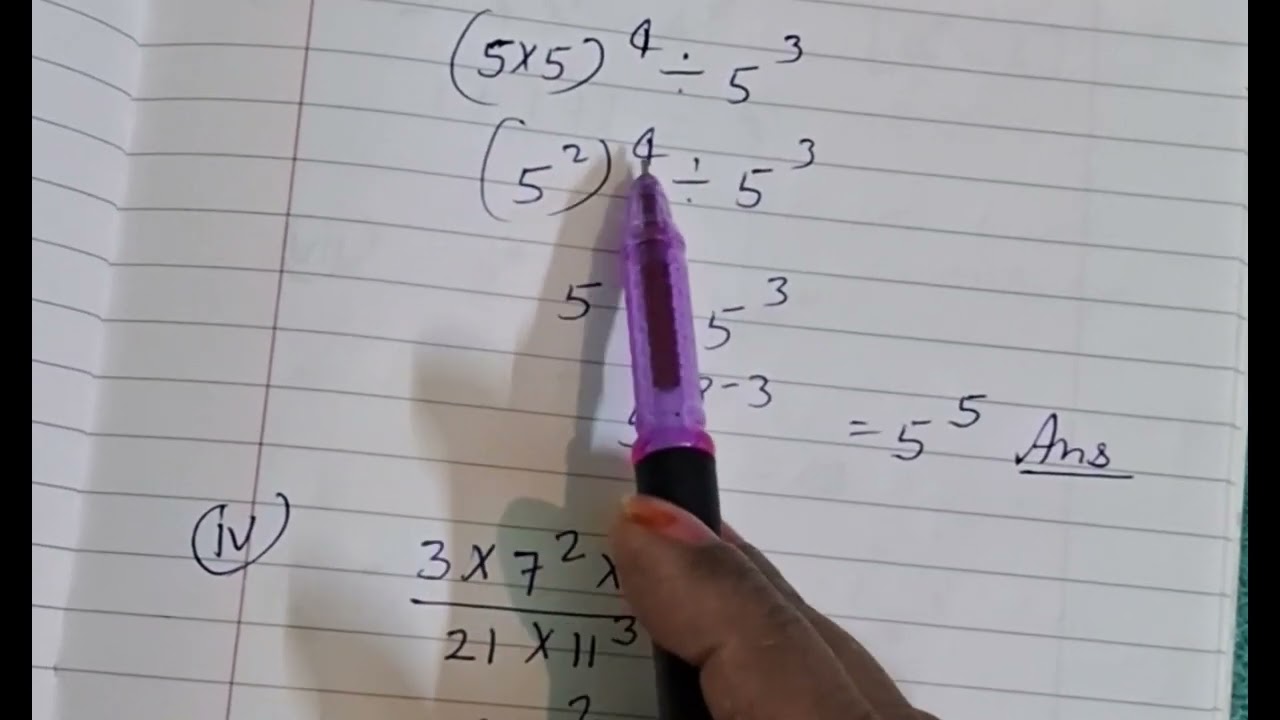 (5×5)⁴ ÷ 5³
(5²)⁴ ÷ 5³
5 5³
-3 = 5⁵ Ans
(iv) 3 × 7² ×
21 × 11³
2